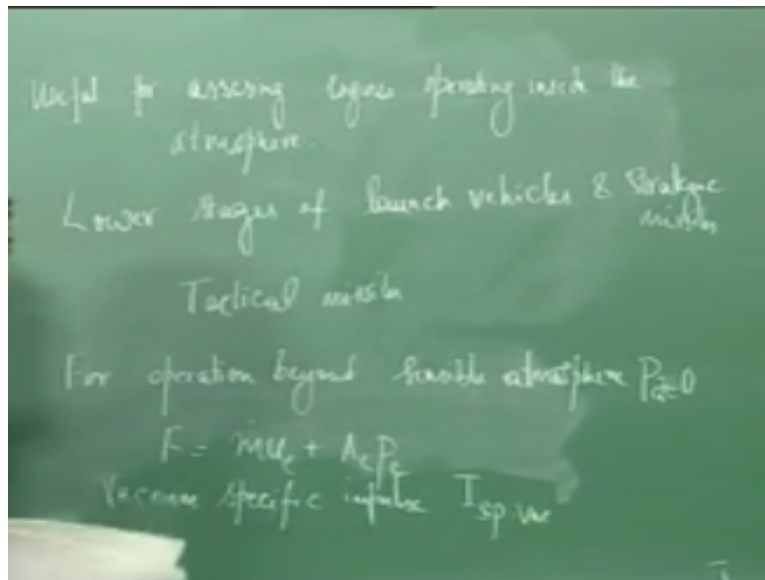 Useful for assessing engines operating inside the
atmosphere.
Lower stages of launch vehicles & Strategic
missiles
Tactical missiles
For operation beyond sensible atmosphere Pa≈0
F = ṁue + AePe
Vacuum specific impulse Isp vac